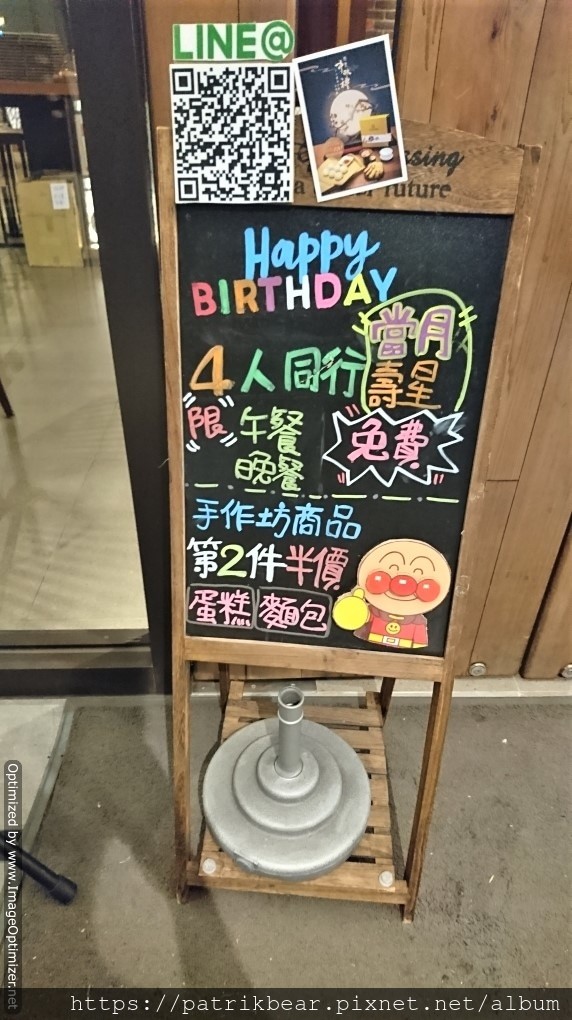 LINE@
Happy
BIRTHDAY
4人同行
當月
壽星
限
午餐
晚餐
免費
手作坊商品
第2件半價
蛋糕 麵包
future
Optimized by www.ImageOptimizer.net
https://patrikbear.pixnet.net/album